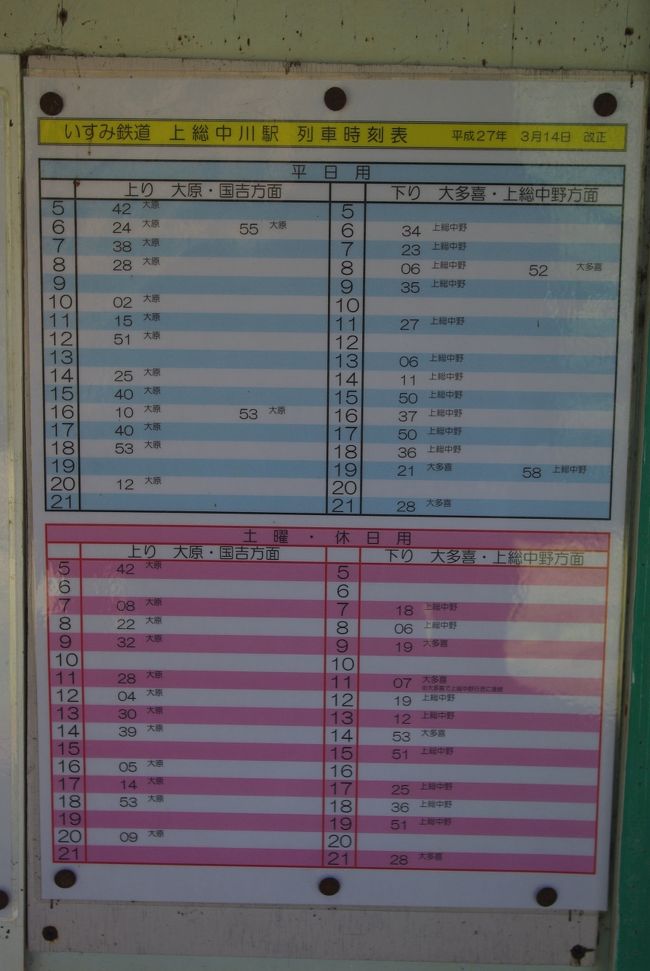 いすみ鉄道 上総中川駅 列車時刻表 平成27年 3月14日 改正
平日用
上り 大原・国吉方面 下り 大多喜・上総中野方面
5 42 大原 5
6 24 大原 55 大原 6 34 上総中野
7 38 大原 7 23 上総中野
8 28 大原 8 06 上総中野 52 大多喜
9 9 35 上総中野
10 02 大原 10
11 15 大原 11 27 上総中野
12 51 大原 12
13 13 06 上総中野
14 25 大原 14 11 上総中野
15 40 大原 15 50 上総中野
16 10 大原 53 大原 16 37 上総中野
17 40 大原 17 50 上総中野
18 53 大原 18 36 上総中野
19 19 21 大多喜 58 上総中野
20 12 大原 20
21 21 28 大多喜
土曜・休日用
上り 大原・国吉方面 下り 大多喜・上総中野方面
5 42 大原 5
6 6
7 08 大原 7 18 上総中野
8 22 大原 8 06 上総中野
9 32 大原 9 19 大多喜
10 10
11 28 大原 11 07 大多喜
12 04 大原 12 19 上総中野
13 30 大原 13 12 上総中野
14 39 大原 14 53 大多喜
15 15 51 上総中野
16 05 大原 16
17 14 大原 17 25 上総中野
18 53 大原 18 36 上総中野
19 19 51 上総中野
20 09 大原 20
21 21 28 大多喜